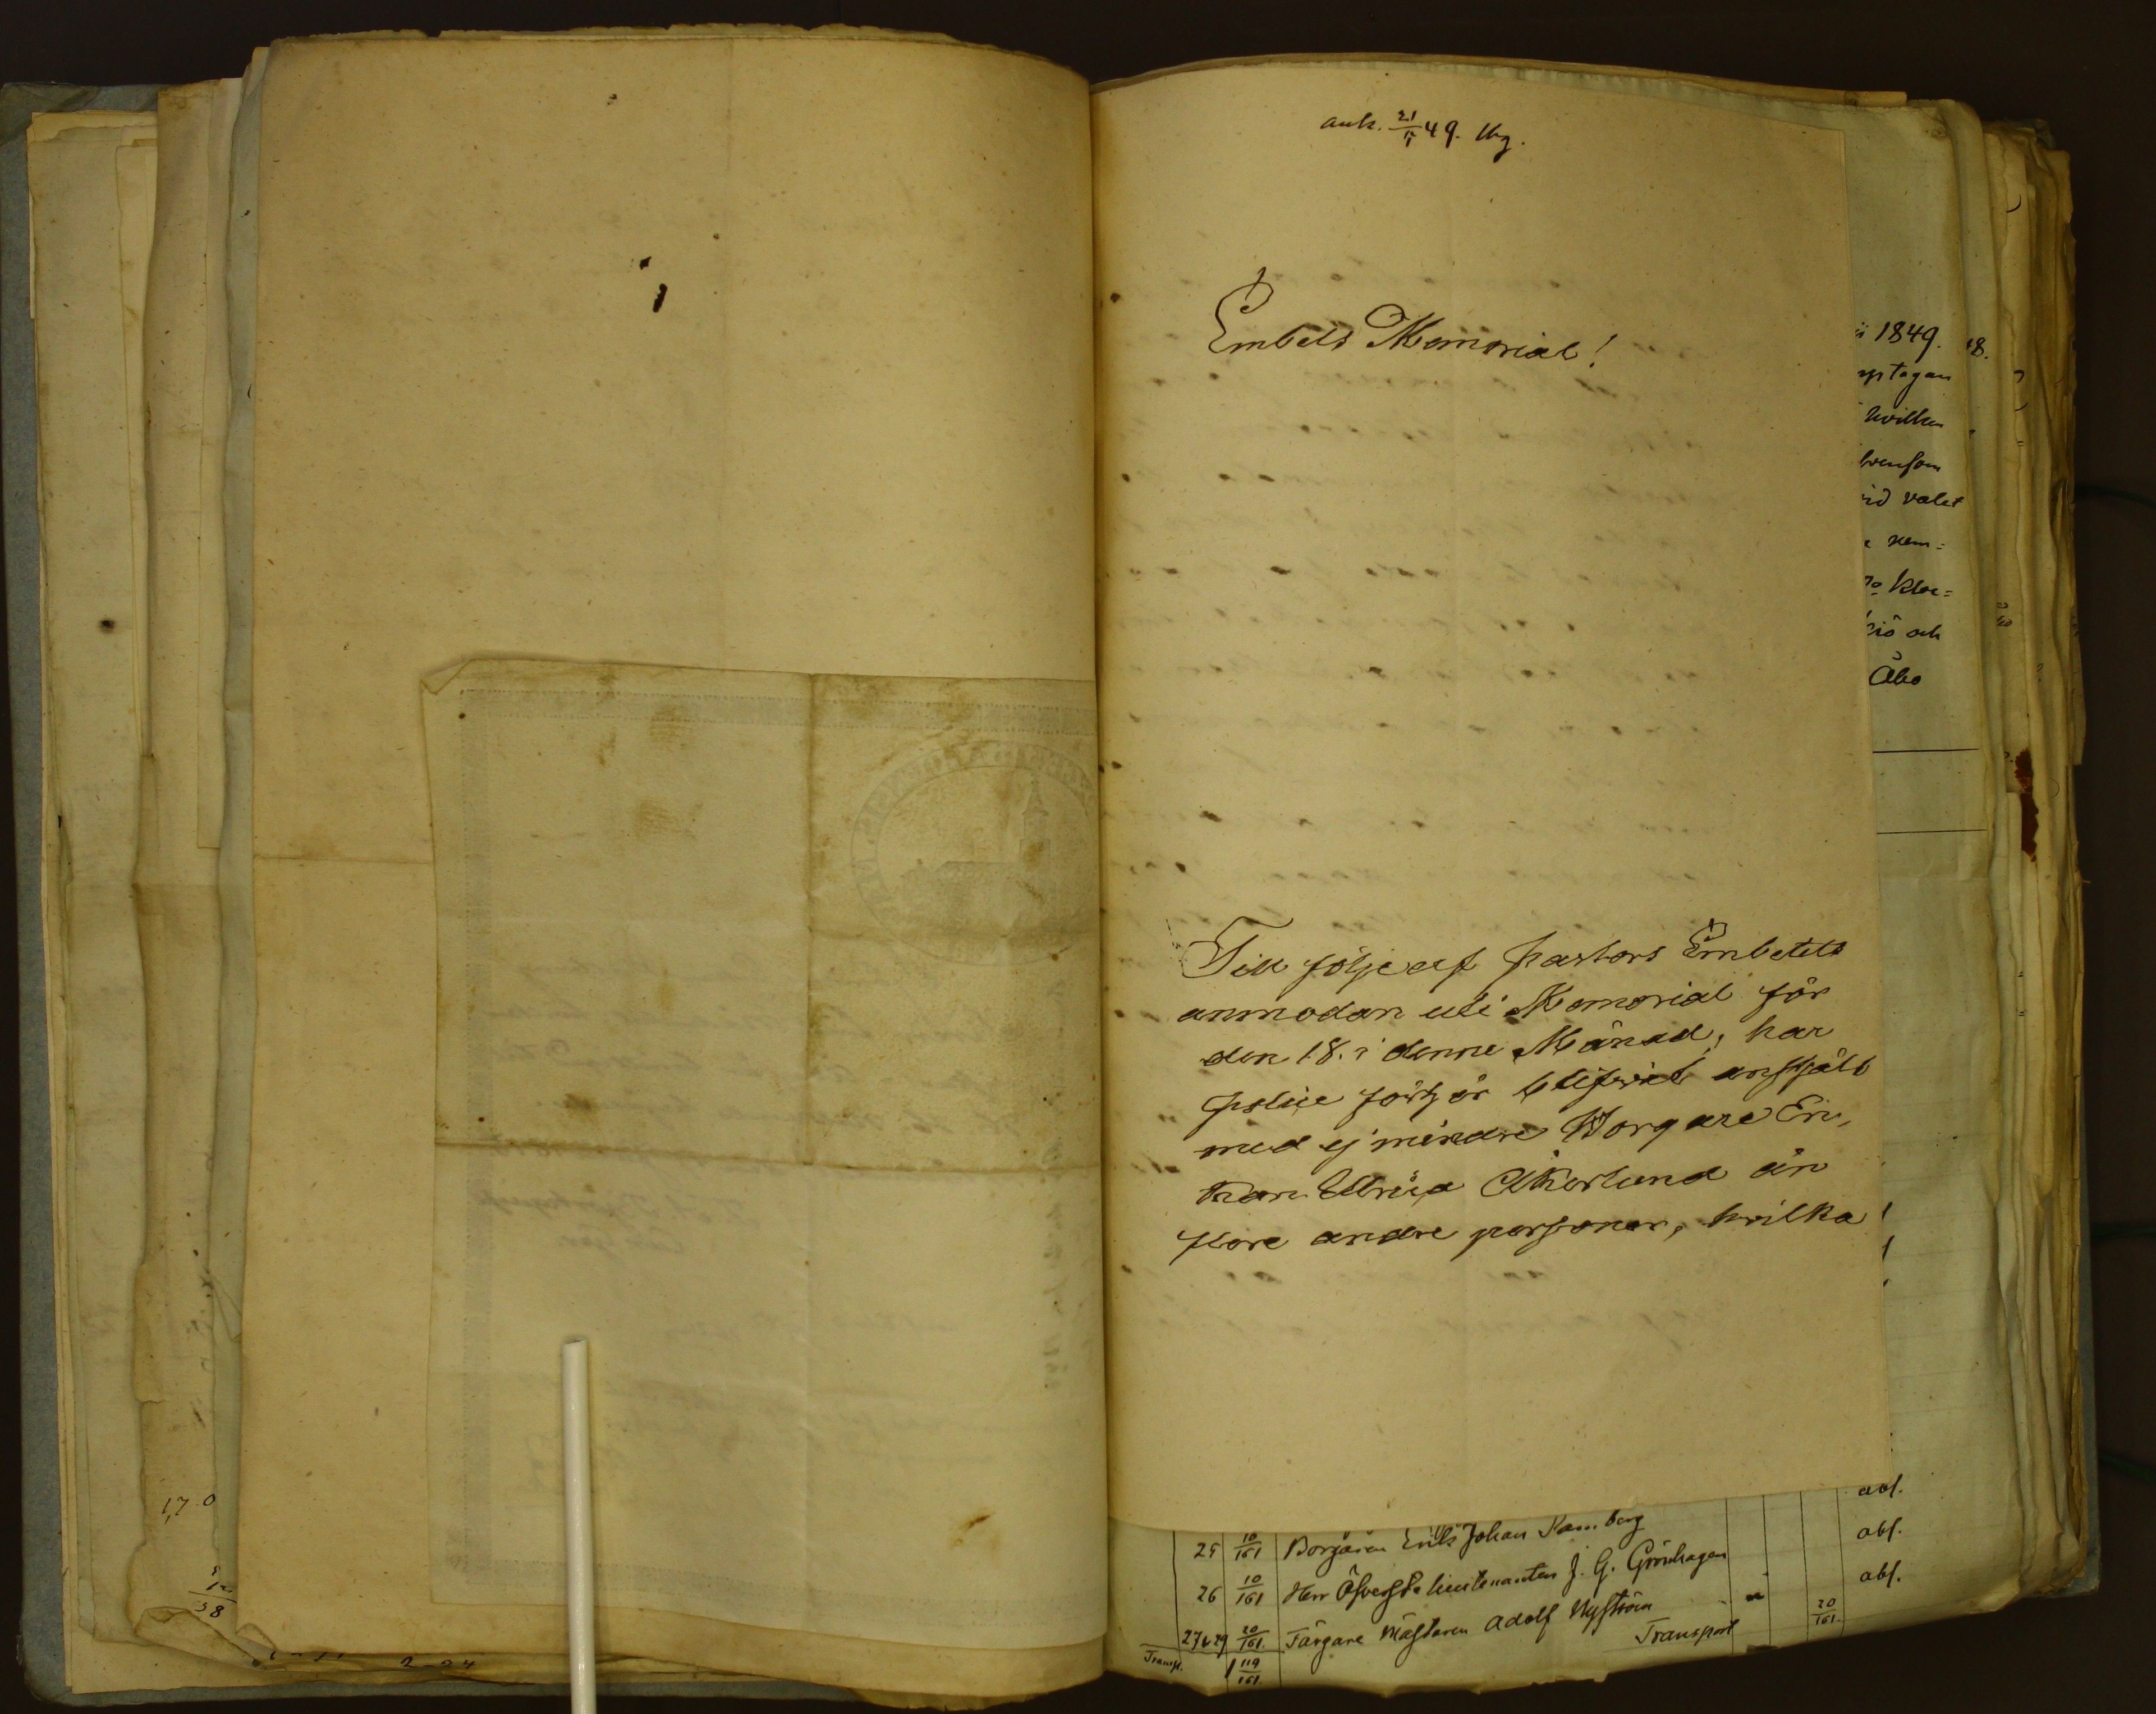 ank. 21/5 49.
Embets Memorial!
Till följe af Pastors Embetets
anmodan uti Memorial för
den 18. i denne Månad, har
police förhör blifvit anstält
med ej mindre Borgare En,
kan Ulrica Åkerlund än
flere andre personer, hvilka
1849.
18.
hvilken
valet
och
Åbo
abs.
25 10/161 Borgaren Erik Johan Ramberg abs.
26 10/161 Herr Öfverste lieutenanten J. G. Grönhagen abs.
27 & 29 20/161. Färgare Mästaren Adolf Nyström 20/161.
Transp. 1 119/161. Transport